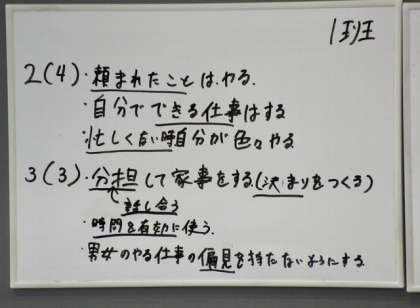 1班
2(4)・頼まれたことは、やる。
・自分でできる仕事はする
・忙しくない時自分が色々やる
3(3)・分担して家事をする(決まりをつくる)
↑話し合う
・時間を有効に使う。
・男女のやる仕事の偏見を持たないようにする。